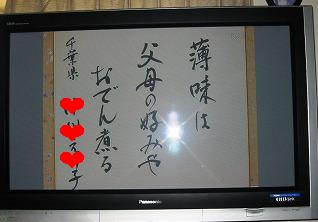 薄味は
父母の好みや
おでん煮る
千葉県
子
Panasonic